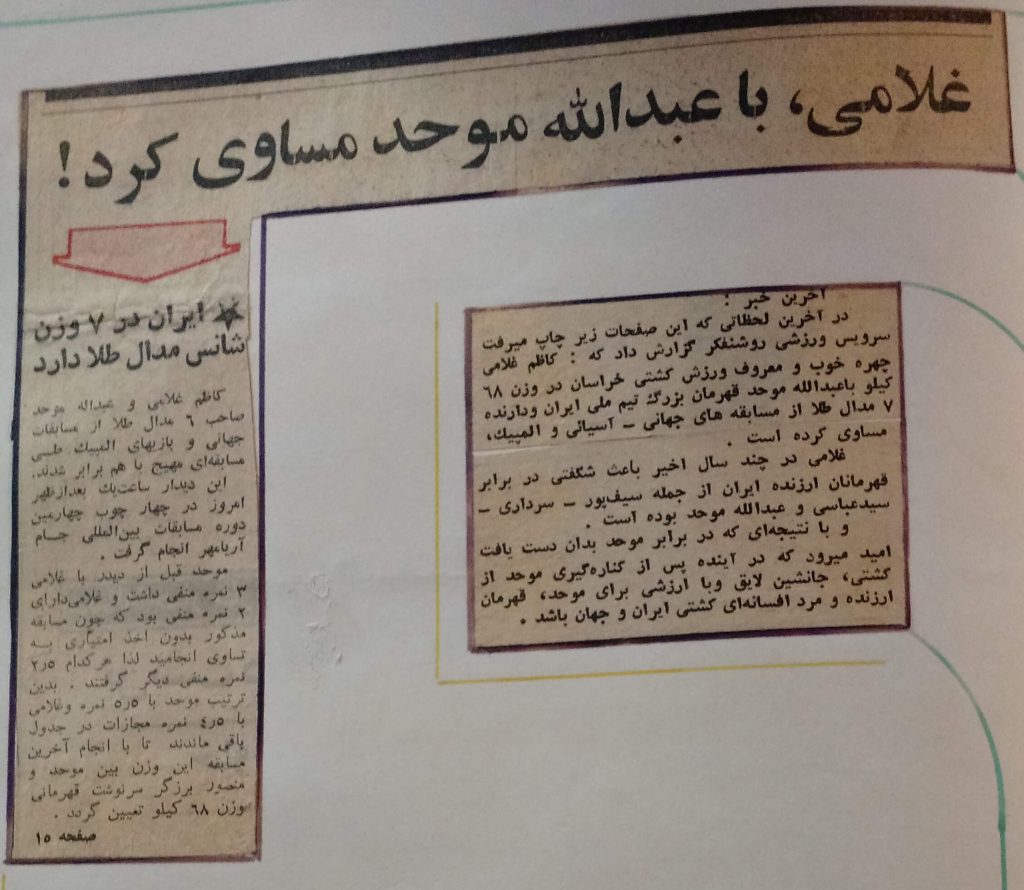 غلامی، با عبدالله موحد مساوی کرد!
ایران در ۷ وزن
شانس مدال طلا دارد
کاظم غلامی و عبداله موحد
صاحب ۶ مدال طلا از مسابقات
جهانی و بازیهای المپیك طی
مسابقه‌ای مهیج با هم برابر شدند.
این دیدار ساعت‌یك بعدازظهر
امروز در چهار چوب چهارمین
دوره مسابقات بین‌المللی جام
آریامهر انجام گرفت .
موحد قبل از دیدر با غلامی
۳ نمره منفی داشت و غلامی‌دارای
۲ نمره منفی بود که چون مسابقه
مذکور بدون اخذ امتیازی به
تساوی انجامید لذا هرکدام ۲٫۵
نمره منفی دیگر گرفتند . بدین
ترتیب موحد با ۵٫۵ نمره وغلامی
با ۴٫۵ نمره مجازات در جدول
باقی ماندند تا با انجام آخرین
مسابقه این وزن بین موحد و
منصور برزگر سرنوشت قهرمانی
وزن ۶۸ کیلو تعیین گردد .
صفحه ۱۵
آخرین خبر :
در آخرین لحظاتی که این صفحات زیر چاپ میرفت
سرویس ورزشی روشنفکر گزارش داد که : کاظم غلامی
چهره خوب و معروف ورزش کشتی خراسان در وزن ۶۸
کیلو باعبدالله موحد قهرمان بزرگ تیم ملی ایران ودارنده
۷ مدال طلا از مسابقه های جهانی – آسیائی و المپیك،
مساوی کرده است .
غلامی در چند سال اخیر باعث شگفتی در برابر
قهرمانان ارزنده ایران از جمله سیف‌پور – سرداری –
سیدعباسی و عبدالله موحد بوده است .
و با نتیجه‌ای که در برابر موحد بدان دست یافت
امید میرود که در آینده پس از کناره‌گیری موحد از
کشتی، جانشین لایق وبا ارزشی برای موحد، قهرمان
ارزنده و مرد افسانه‌ای کشتی ایران و جهان باشد .